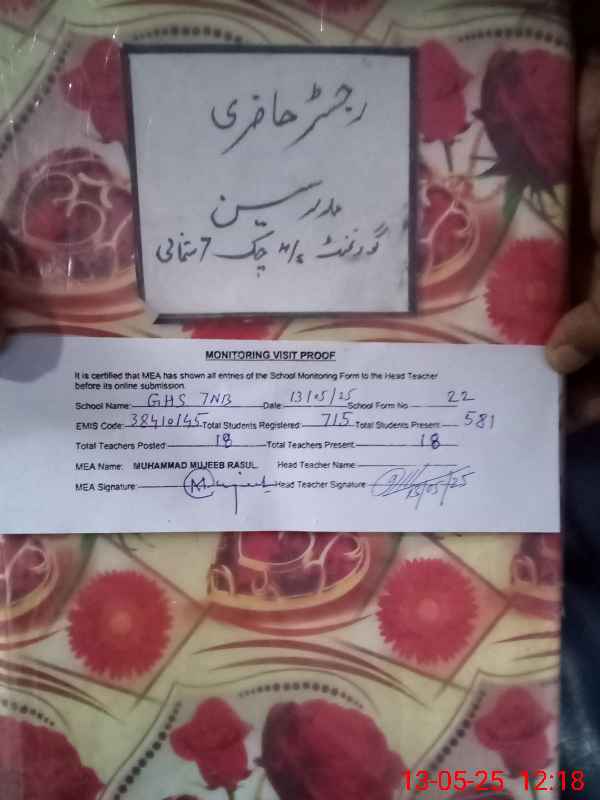 رجسٹر حاضری
مدرسین
گورنمنٹ چک 7 شمالی
MONITORING VISIT PROOF
It is certified that MEA has shown all entries of the School Monitoring Form to the Head Teacher
before its online submission.
School Name: GHS 7NB Date: 13/05/25 School Form No 22
EMIS Code: 38410145 Total Students Registered: 715 Total Students Present 581
Total Teachers Posted 18 Total Teachers Present 18
MEA Name: MUHAMMAD MUJEEB RASUL. Head Teacher Name
MEA Signature: M. Mujeeb Head Teacher Signature 13/05/25
13-05-25 12:18